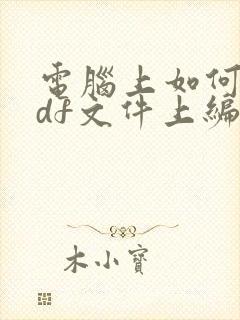 電腦上如何
df文件上編
木小寶